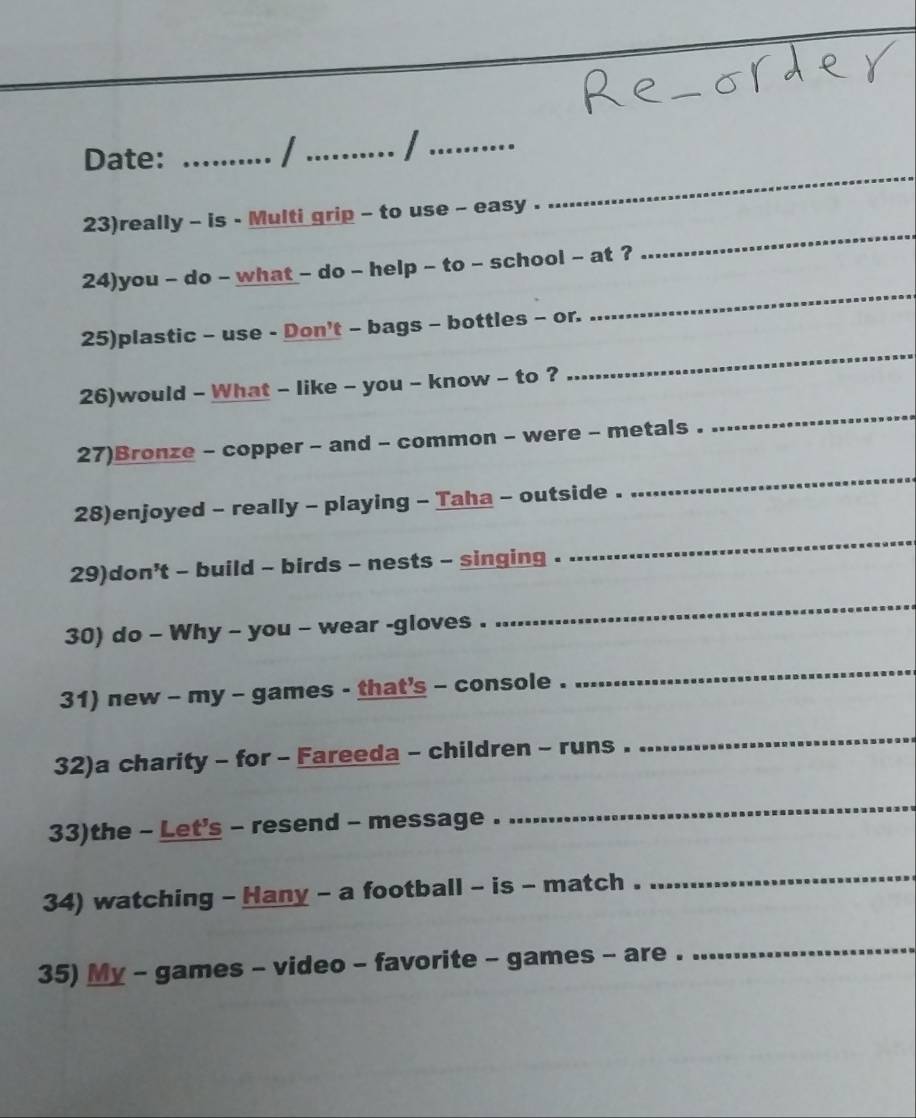 Re-order
Date: .......... / .......... / ..........
23)really – is - Multi grip – to use – easy .
24)you – do – what – do – help – to – school – at ?
25)plastic – use - Don't – bags – bottles – or.
26)would – What – like – you – know – to ?
27)Bronze – copper – and – common – were – metals .
28)enjoyed – really – playing – Taha – outside .
29)don't – build – birds – nests – singing .
30) do – Why – you – wear -gloves .
31) new – my – games - that's – console .
32)a charity – for – Fareeda – children – runs .
33)the – Let's – resend – message .
34) watching – Hany – a football – is – match .
35) My – games – video – favorite – games – are .